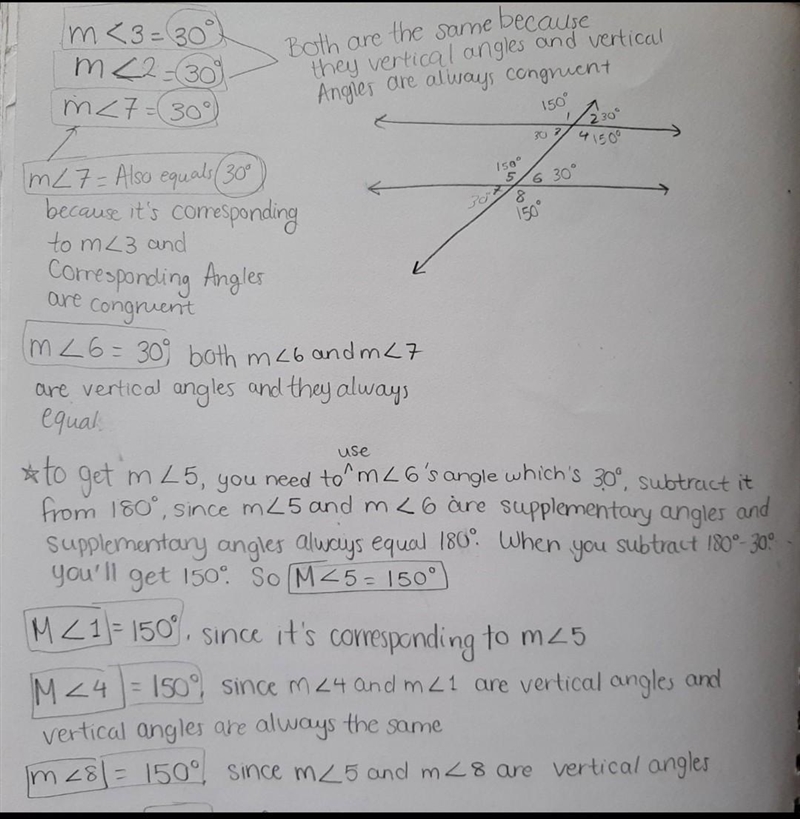 m<3=30°
m∠2=30°
m∠7=30°
Both are the same because
they vertical angles and vertical
Angles are always congruent
150° 1 2 30°
30 4 150°
150°
5 6 30°
30° 7 8
150°
m∠7= Also equals 30°
because it's corresponding
to m∠3 and
Corresponding Angles
are congruent
m∠6=30°, both m∠6 and m∠7
are vertical angles and they always
equal.
☆to get m∠5, you need to ^use m∠6's angle which's 30°, subtract it
from 180°, since m∠5 and m∠6 are supplementary angles and
supplementary angles always equal 180°. When you subtract 180°-30°
you'll get 150°. So M∠5=150°
M∠1=150°, since it's corresponding to m∠5
M∠4=150°, since m∠4 and m∠1 are vertical angles and
vertical angles are always the same
m∠8= 150°, since m∠5 and m∠8 are vertical angles